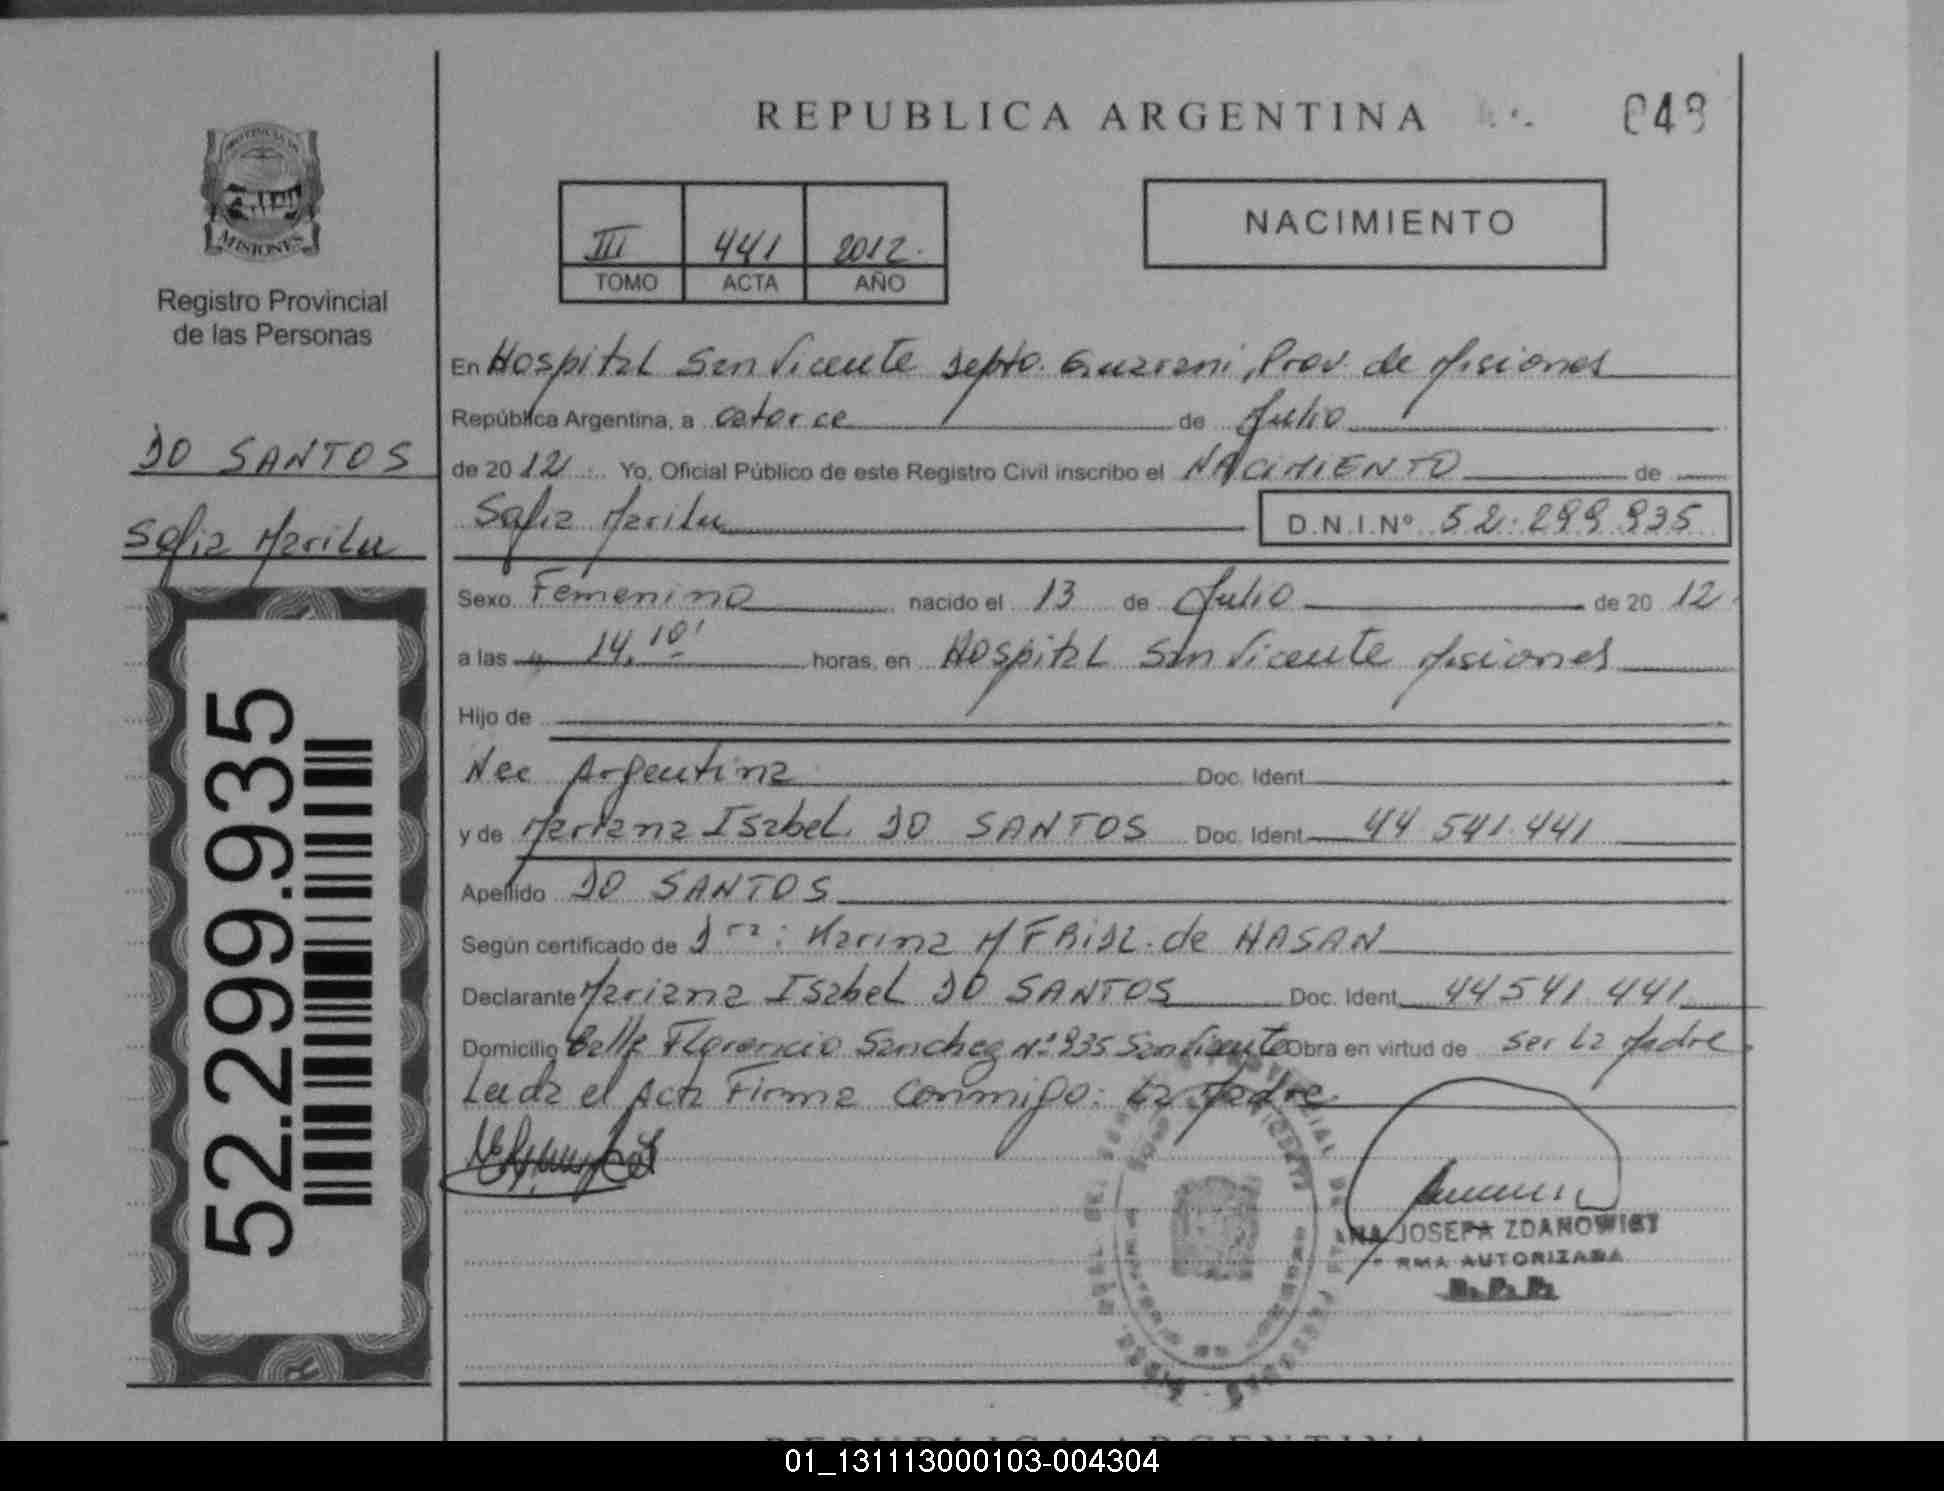 REPUBLICA ARGENTINA
048
MISIONES
Registro Provincial
de las Personas
III 441 2012.
TOMO ACTA AÑO
NACIMIENTO
DO SANTOS
Sofia Marilu
52.299.935
En Hospital San Vicente Depto. Guarani, Prov. de Misiones
República Argentina, a catorce de Julio
de 20 12 Yo, Oficial Público de este Registro Civil inscribo el NACIMIENTO de
Sofia Marilu D.N.I.Nº 52.299.935
Sexo Femenino nacido el 13 de Julio de 20 12
a las 14,10' horas, en Hospital San Vicente Misiones
Hijo de
Nac Argentina Doc. Ident.
y de Mariana Isabel DO SANTOS Doc. Ident. 44 541.441
Apellido DO SANTOS
Según certificado de Dra: Marina M de HASAN
Declarante Mariana Isabel DO SANTOS Doc. Ident. 44 541 441
Domicilio Calle Florencio Sanchez Nº 935 San Vicente Obra en virtud de ser la Madre
Leida el Acta Firma conmigo: La Madre
JOSEFA ZDANOWIST
RMA AUTORIZADA
R.P.P.
REPUBLICA ARGENTINA
01_131113000103-004304